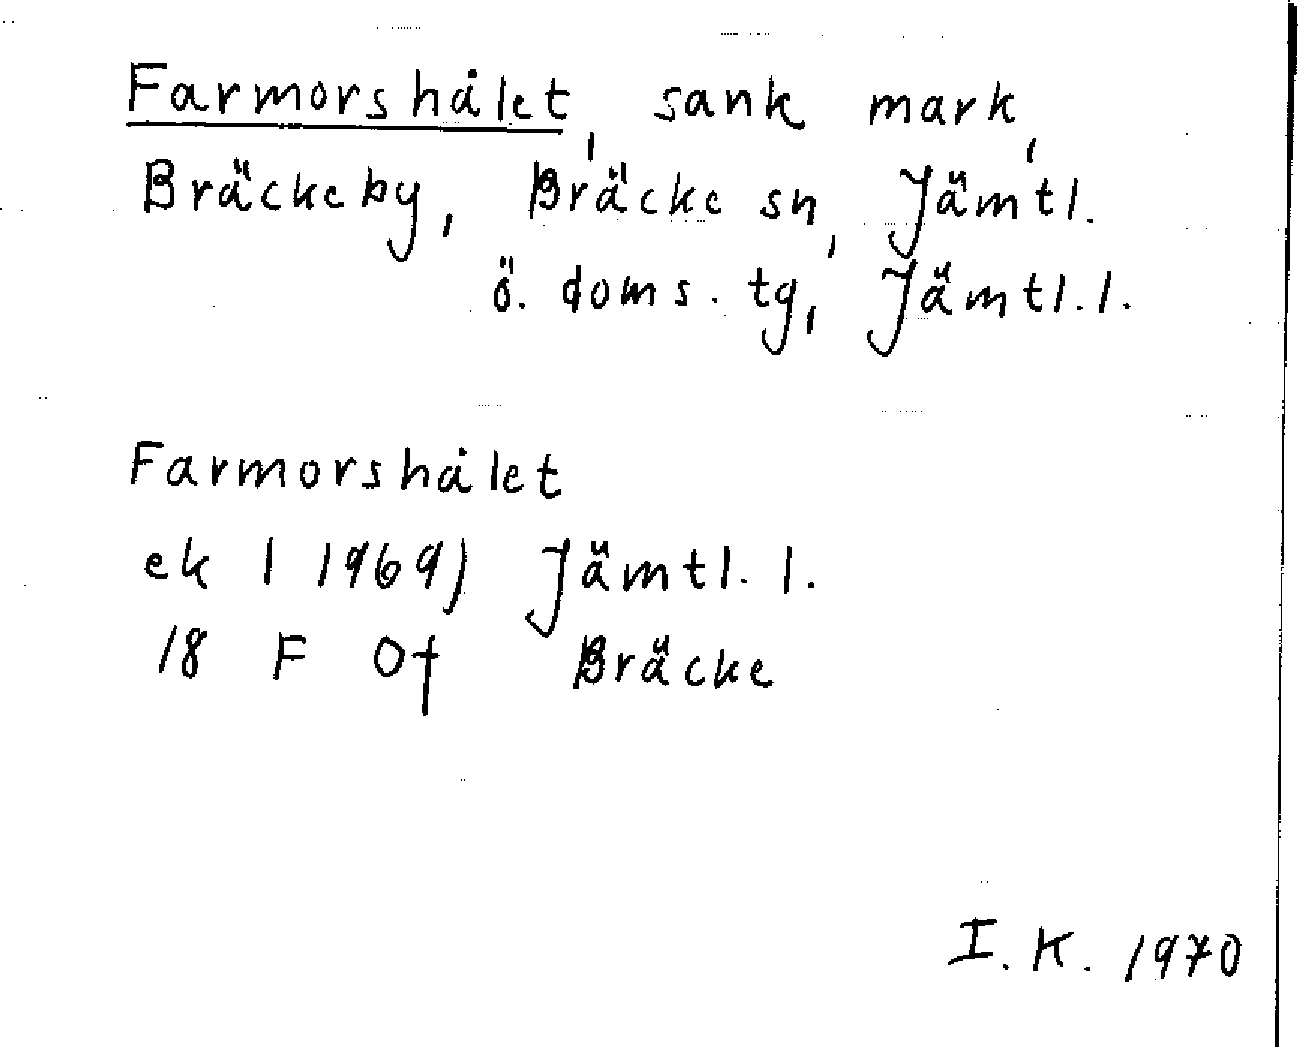 Farmorshålet, sank mark,
Bräckeby, Bräcke sn, Jämtl.
ö. doms. tg, Jämtl. l.
Farmorshålet
ek l 1969) Jämtl. l.
18 F 0f Bräcke
I. K. 1970